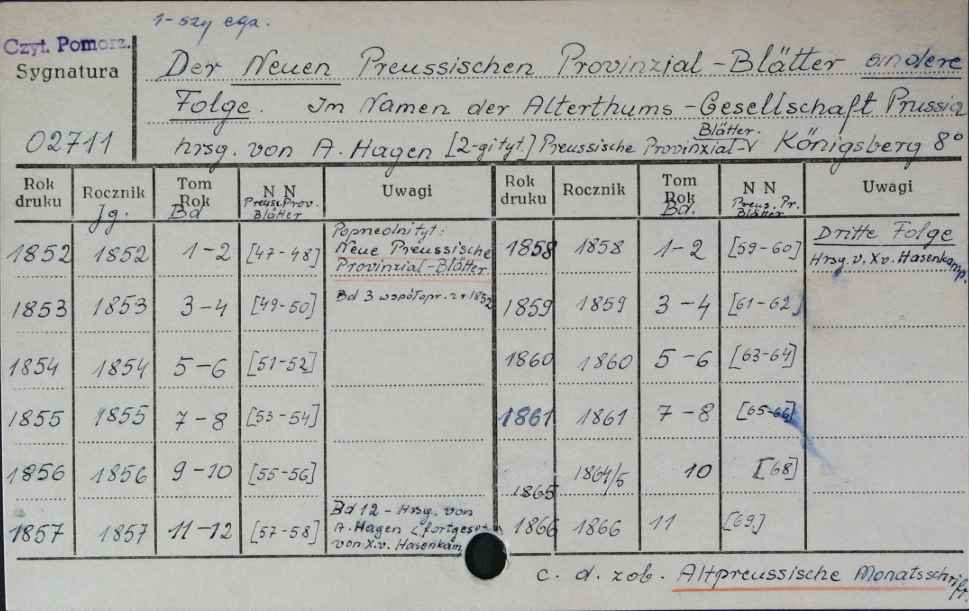 1-szy egz.
Czyt. Pomorz.
Sygnatura
02711
Der Neuen Preussischen Provinzial-Blätter andere
Folge. Im Namen der Alterthums-Gesellschaft Prussia
hrsg. von A. Hagen [2-gi tyt.] Preussische Provinzial-Blätter. Königsberg 8°
Rok druku Rocznik Jg. Tom Rok Bd N N Preuss. Prov. Blätter Uwagi Rok druku Rocznik Tom Rok Bd. N N Preus. Pr. Blätter Uwagi
1852 1852 1-2 [47-48] Poprzedni tyt: Neue Preussische Provinzial-Blätter. 1858 1858 1-2 [59-60] Dritte Folge Hrsg. v. X. v. Hasenkamp.
1853 1853 3-4 [49-50] Bd 3 współopr. z r. 1852 1859 1859 3-4 [61-62]
1854 1854 5-6 [51-52] 1860 1860 5-6 [63-64]
1855 1855 7-8 [53-54] 1861 1861 7-8 [65-66]
1856 1856 9-10 [55-56] 1865 1864/5 10 [68]
1857 1857 11-12 [57-58] Bd 12 - Hrsg. von A. Hagen von X. v. Hasenkam 1866 1866 11 [69.]
c. d. zob. Altpreussische Monatsschrift.